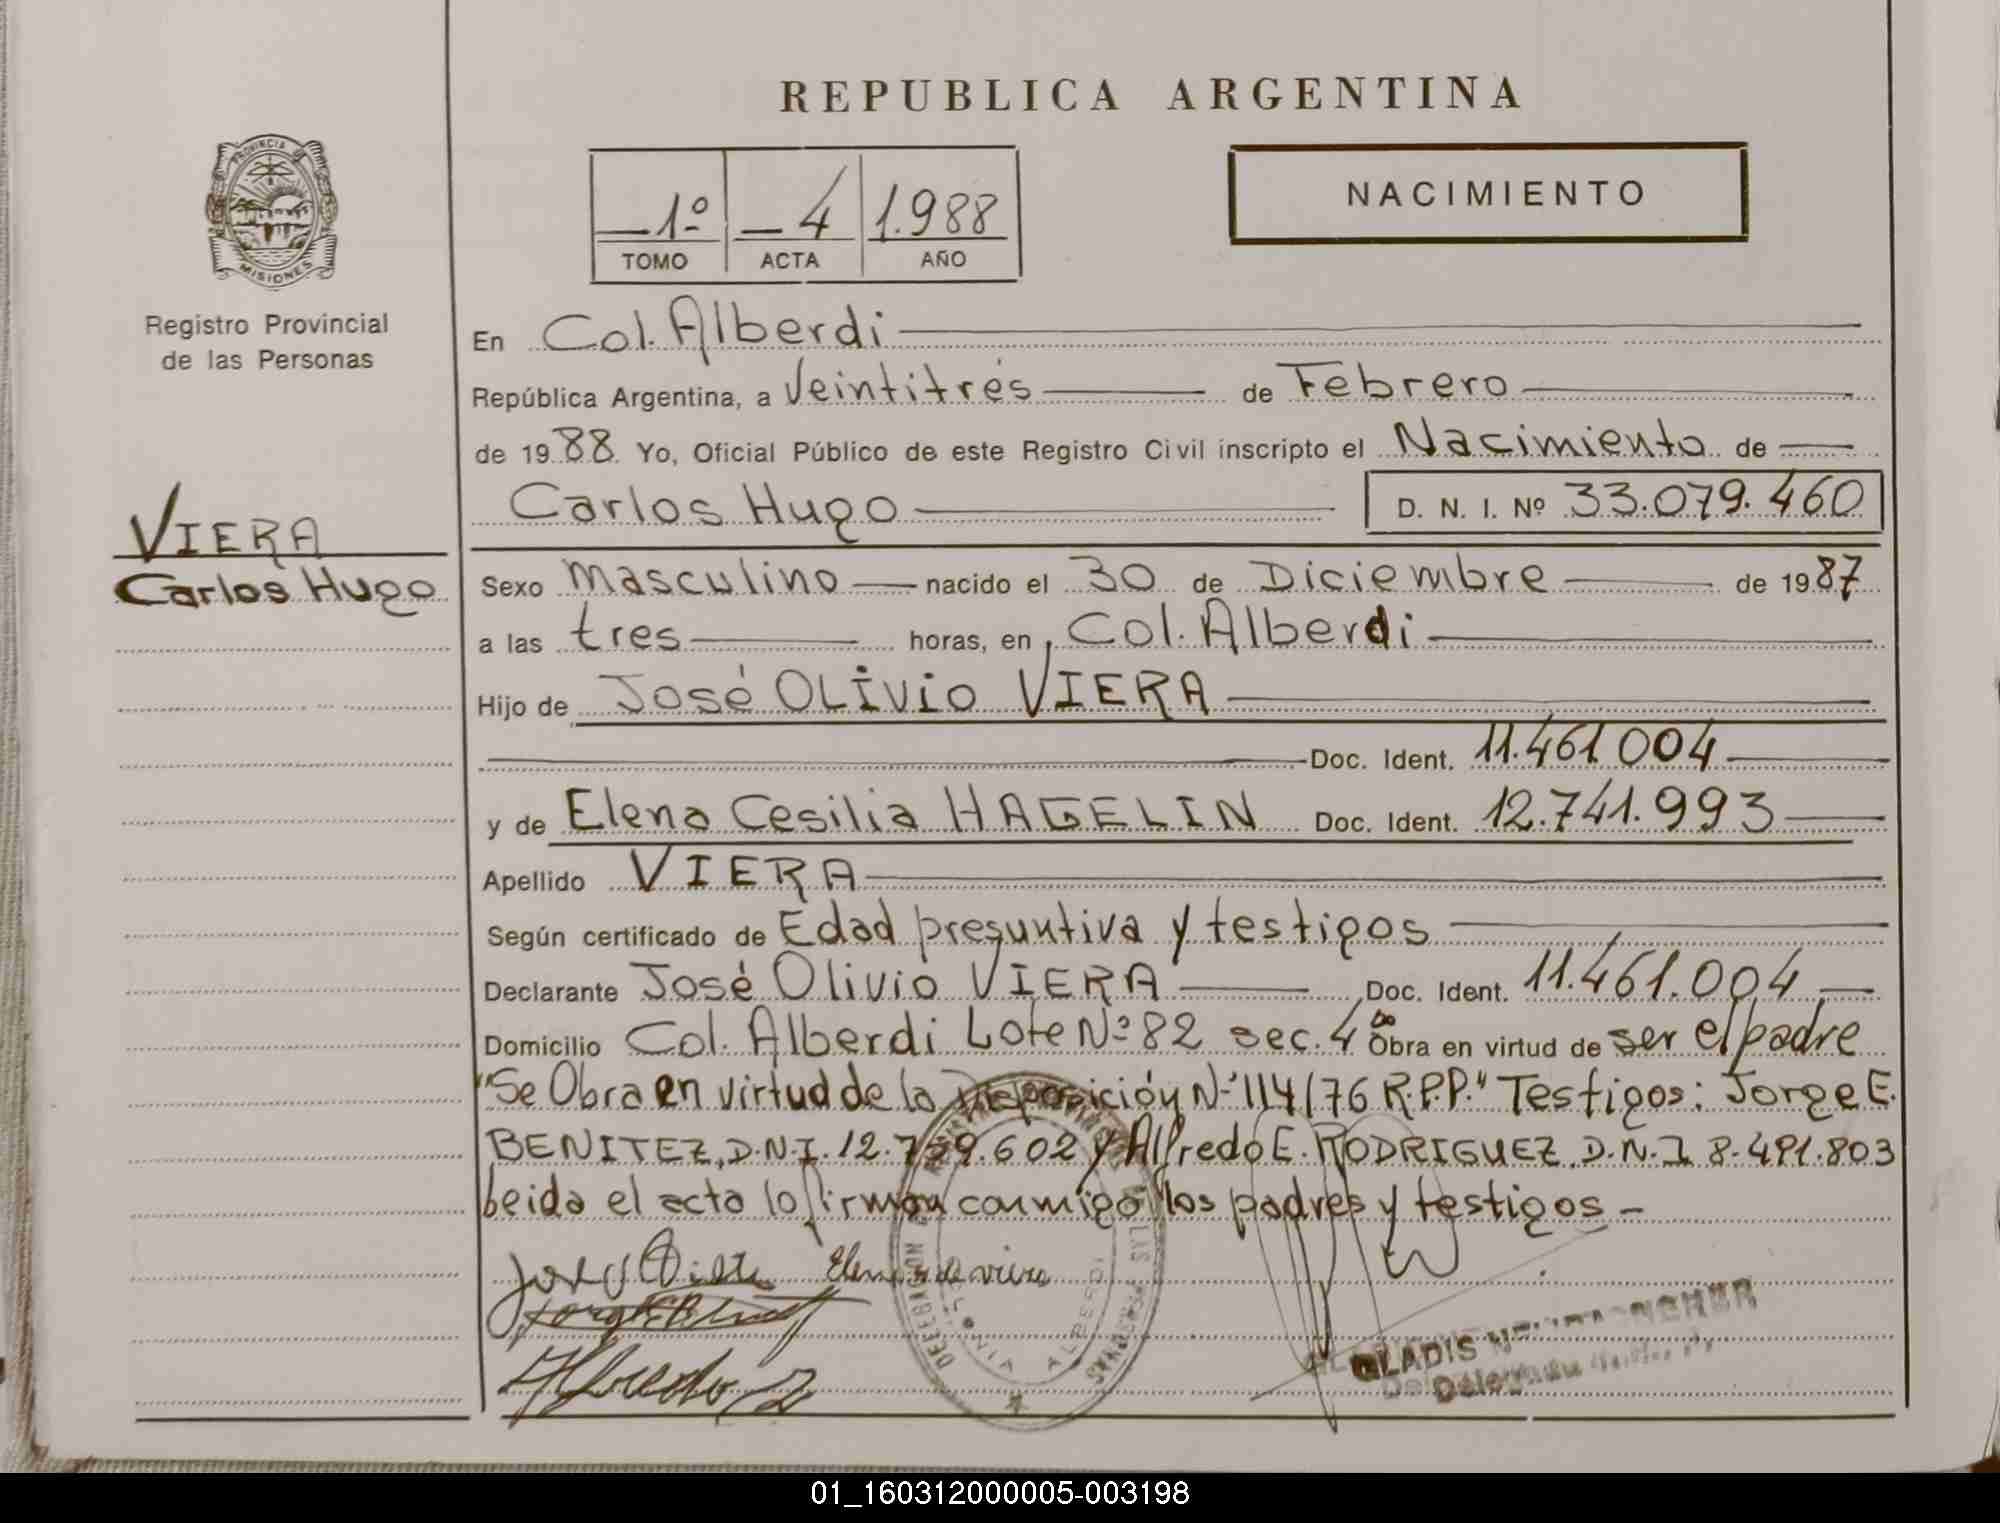 REPUBLICA ARGENTINA
PROVINCIA DE MISIONES
Registro Provincial
de las Personas
1º 4 1.988
TOMO ACTA AÑO
NACIMIENTO
En Col. Alberdi
República Argentina, a Veintitrés de Febrero
de 1988 Yo, Oficial Público de este Registro Civil inscripto el Nacimiento de
Carlos Hugo D. N. I. Nº 33.079.460
VIERA
Carlos Hugo
Sexo Masculino nacido el 30 de Diciembre de 1987
a las tres horas, en Col. Alberdi
Hijo de José OLIVIO VIERA
Doc. Ident. 11.461.004
y de Elena Cesilia HAGELIN Doc. Ident. 12.741.993
Apellido VIERA
Según certificado de Edad presuntiva y testigos
Declarante José Olivio VIERA Doc. Ident. 11.461.004
Domicilio Col. Alberdi Lote Nº 82 sec. 4º Obra en virtud de ser el padre
"Se Obra en virtud de la Disposición Nº 114/76 R.P.P." Testigos: Jorge E.
BENITEZ, D.N.I. 12.759.602 y Alfredo E. RODRIGUEZ D.N.I 8.491.803
Leida el acta lo firman conmigo los padres y testigos -
Elena de viera
Alfredo
DELEGACION
COLONIA ALBERDI
DE LAS PERSONAS
GLADIS
Delegada
01_160312000005-003198